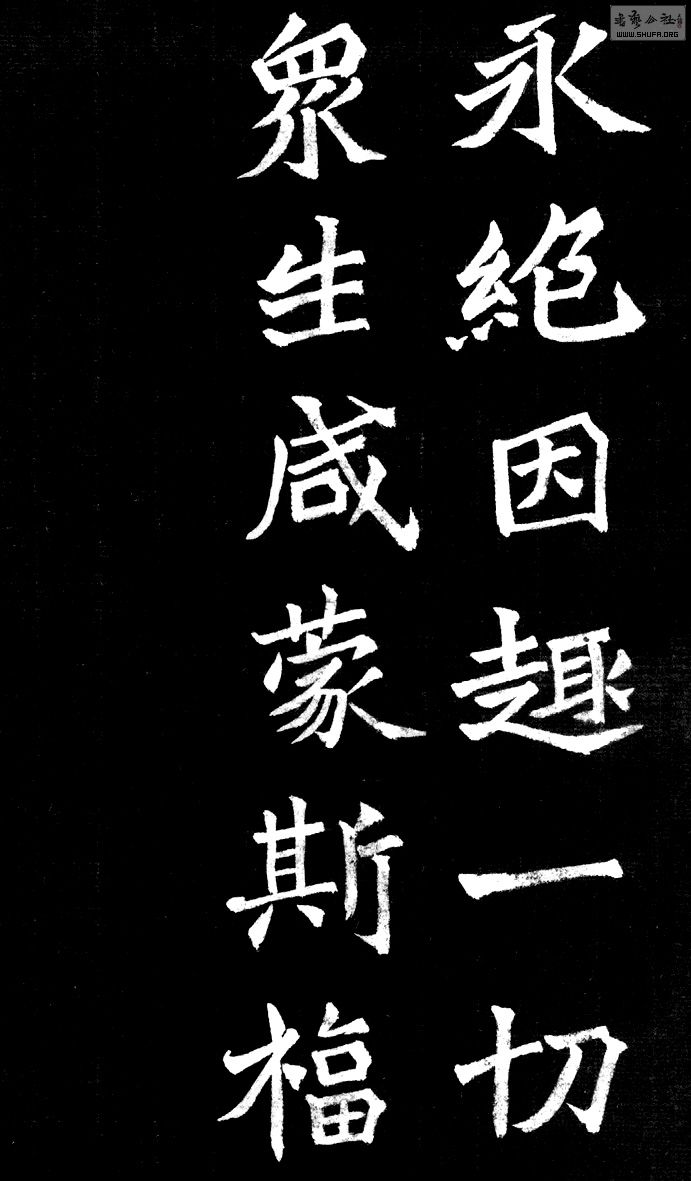 永絶因趣一切
衆生咸蒙斯福
書藝公社
WWW.SHUFA.ORG